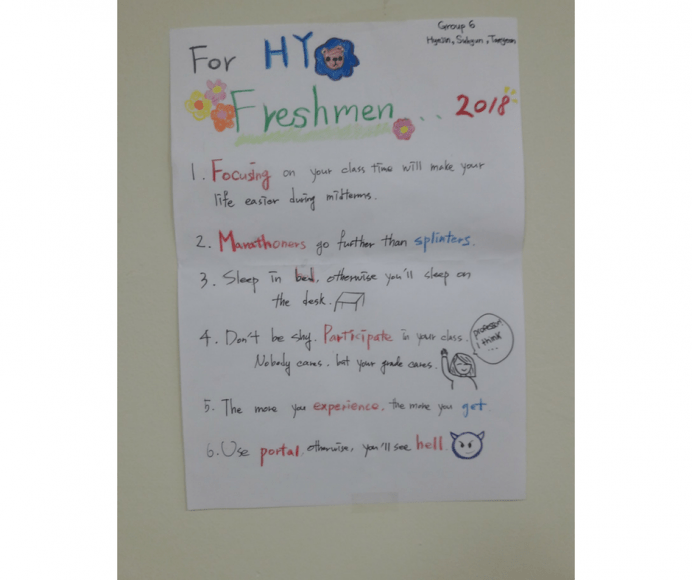 Group 6
For HY
Freshmen... 2018
1. Focusing on your class time will make your
life easier during midterms.
2. Marathoners go further than splinters.
3. Sleep in bed, otherwise you'll sleep on
the desk.
4. Don't be shy. Participate in your class.
Nobody cares, but your grade cares.
professor
I think
...
5. The more you experience, the more you get
6. Use portal, otherwise, you'll see hell.